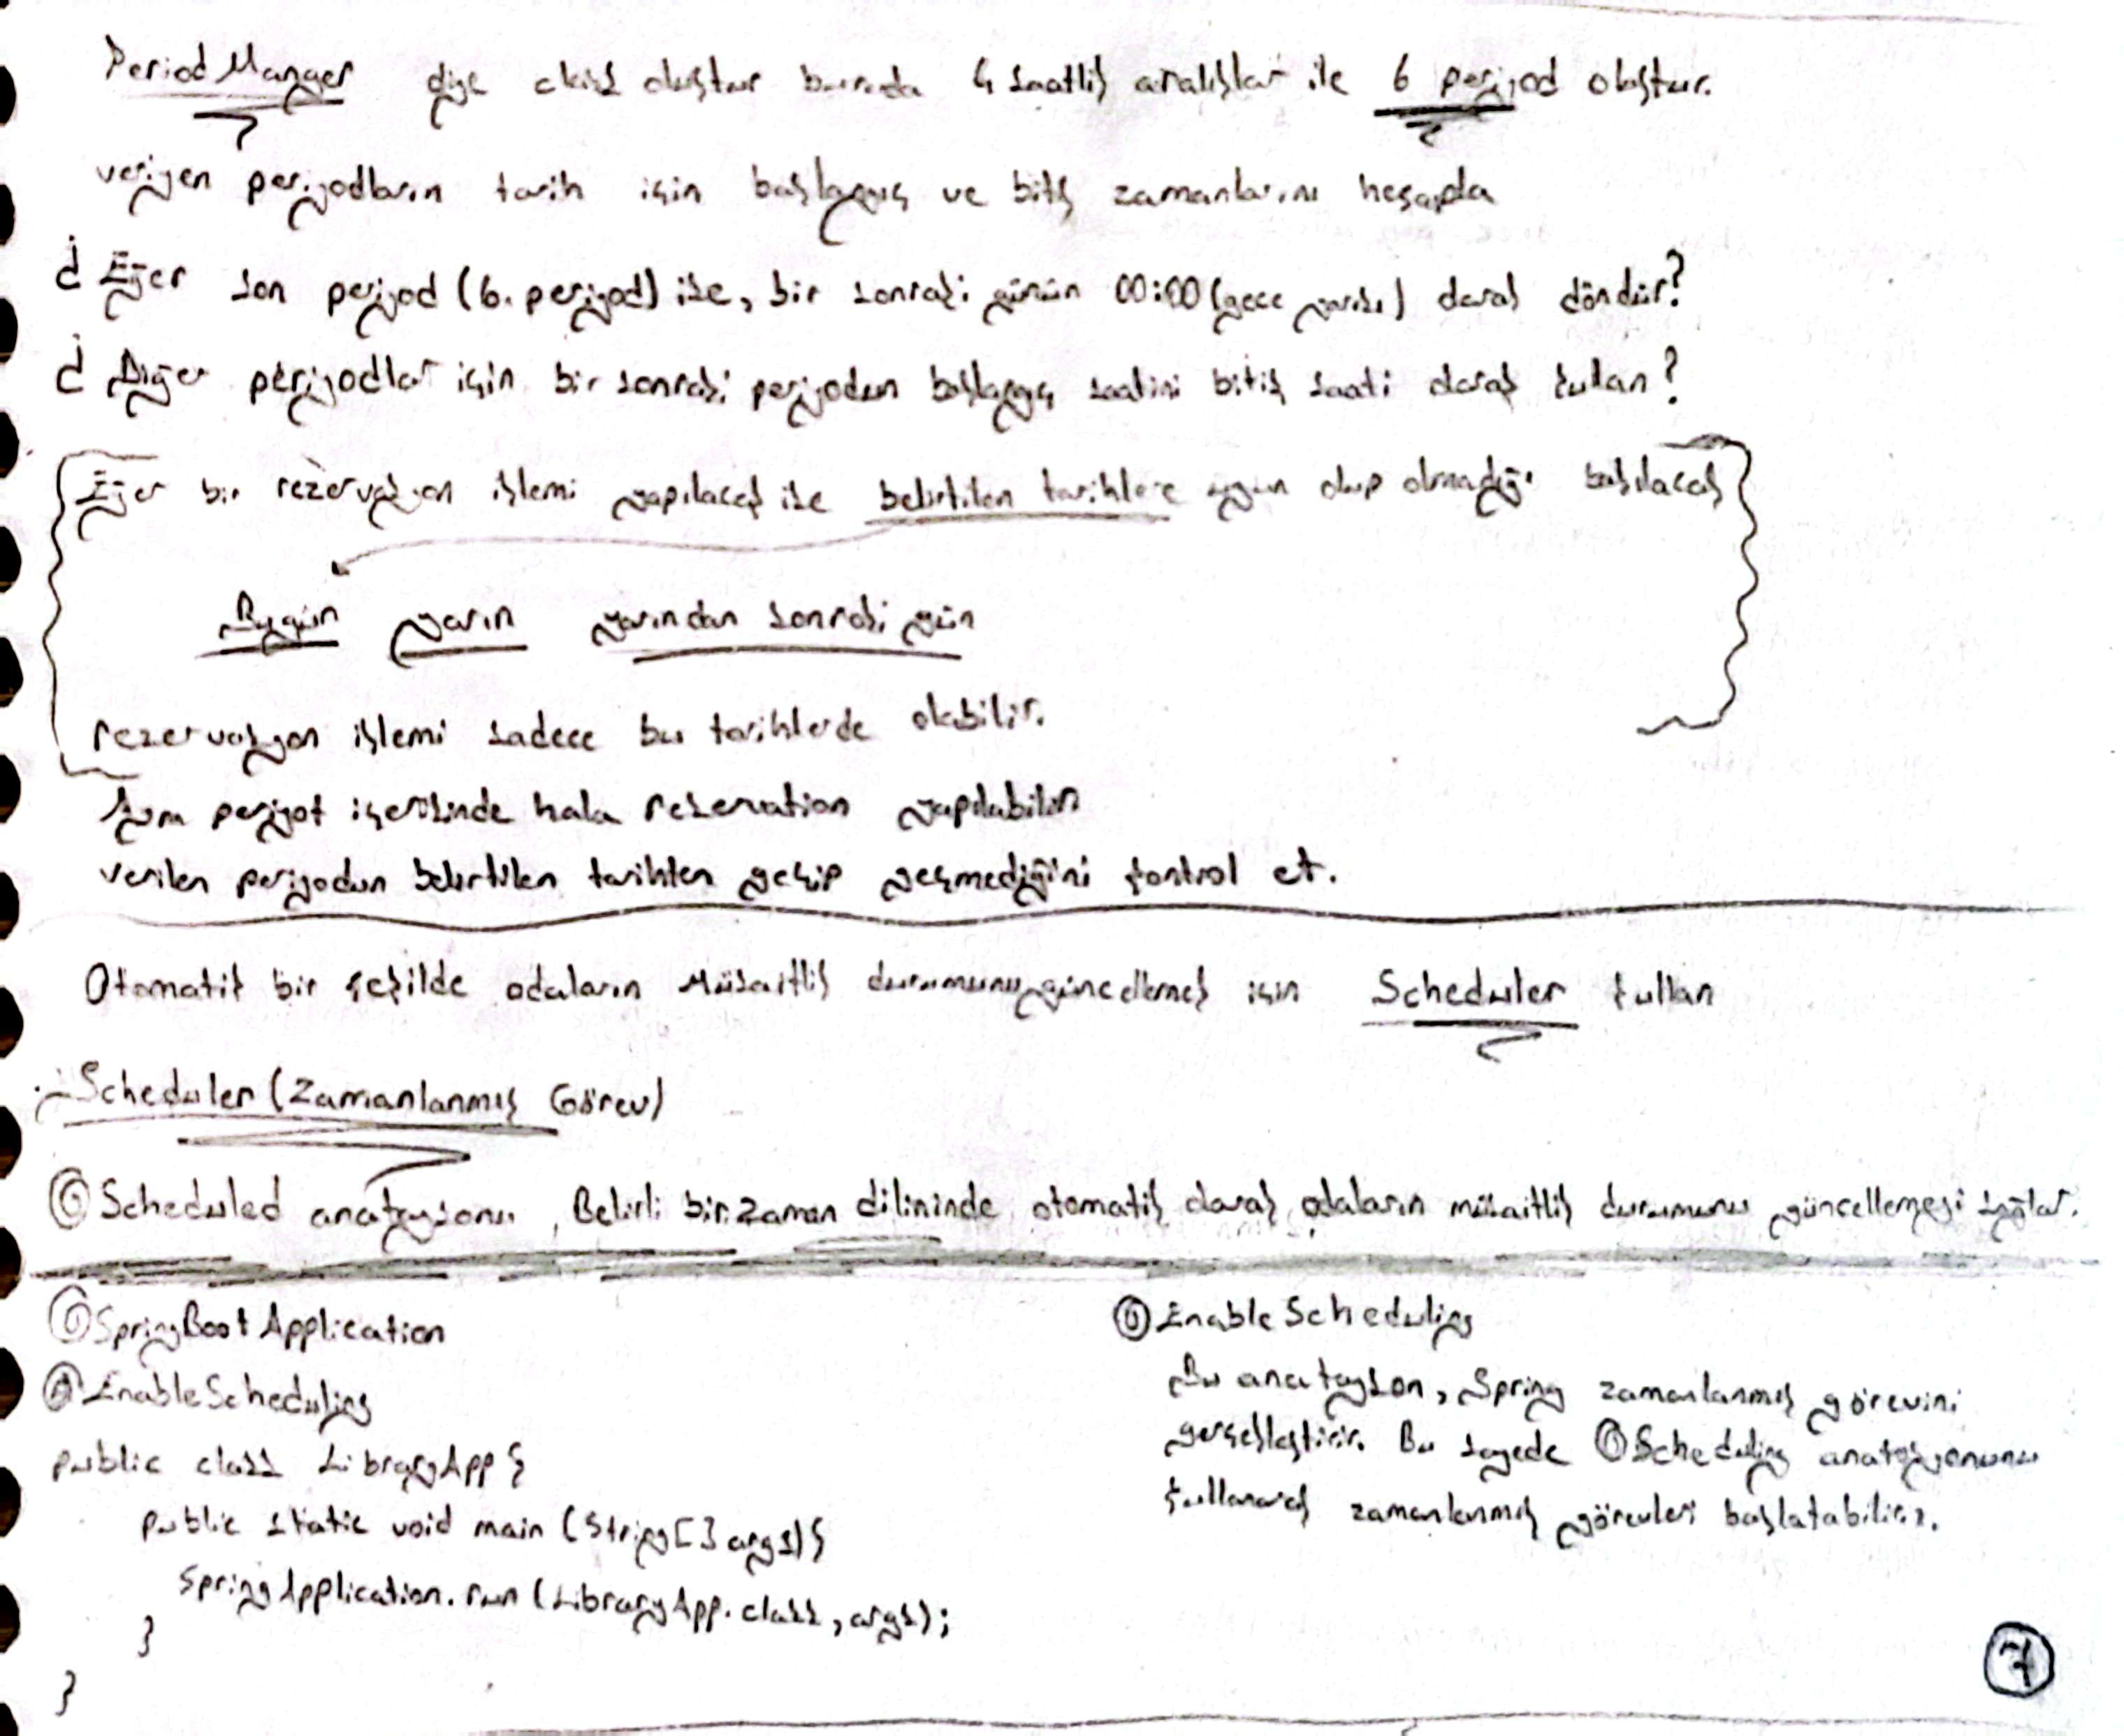 Period Manger diye class oluştur burada 4 saatlik aralıklar ile 6 periyod oluştur.
veriyen periyodların tarih için başlangıç ve bitiş zamanlarını hesapla
Eğer son periyod (6. periyod) ise, bir sonraki günün 00:00 (gece yarısı) olarak döndür?
Diğer periyodlar için bir sonraki periyodun başlangıç saatini bitiş saati olarak kullan?
Eğer bir rezervasyon işlemi yapılacak ise belirtilen tarihlere uygun olup olmadığı bakılacak
Bugün yarın yarından sonraki gün
rezervasyon işlemi sadece bu tarihlerde olabilir.
Aynı periyot içerisinde hala reservation yapılabilir
verilen periyodun belirtilen tarihten geçip geçmediğini kontrol et.
Otomatik bir şekilde odaların müsaitlik durumunu güncellemek için Scheduler kullan
Scheduler (Zamanlanmış Görev)
@Scheduled anatasyonu, Belirli bir zaman dilininde otomatik olarak odaların müsaitlik durumunu güncellemeyi sağlar.
@SpringBootApplication
@EnableScheduling
public class LibraryApp {
public static void main (String[] args) {
SpringApplication.run (LibraryApp.class, args);
}
}
@EnableScheduling
Bu anatasyon, Spring zamanlanmış görevini
gerçekleştirir. Bu sayede @Scheduling anatasyonunu
kullanarak zamanlanmış görevleri başlatabiliriz.
7